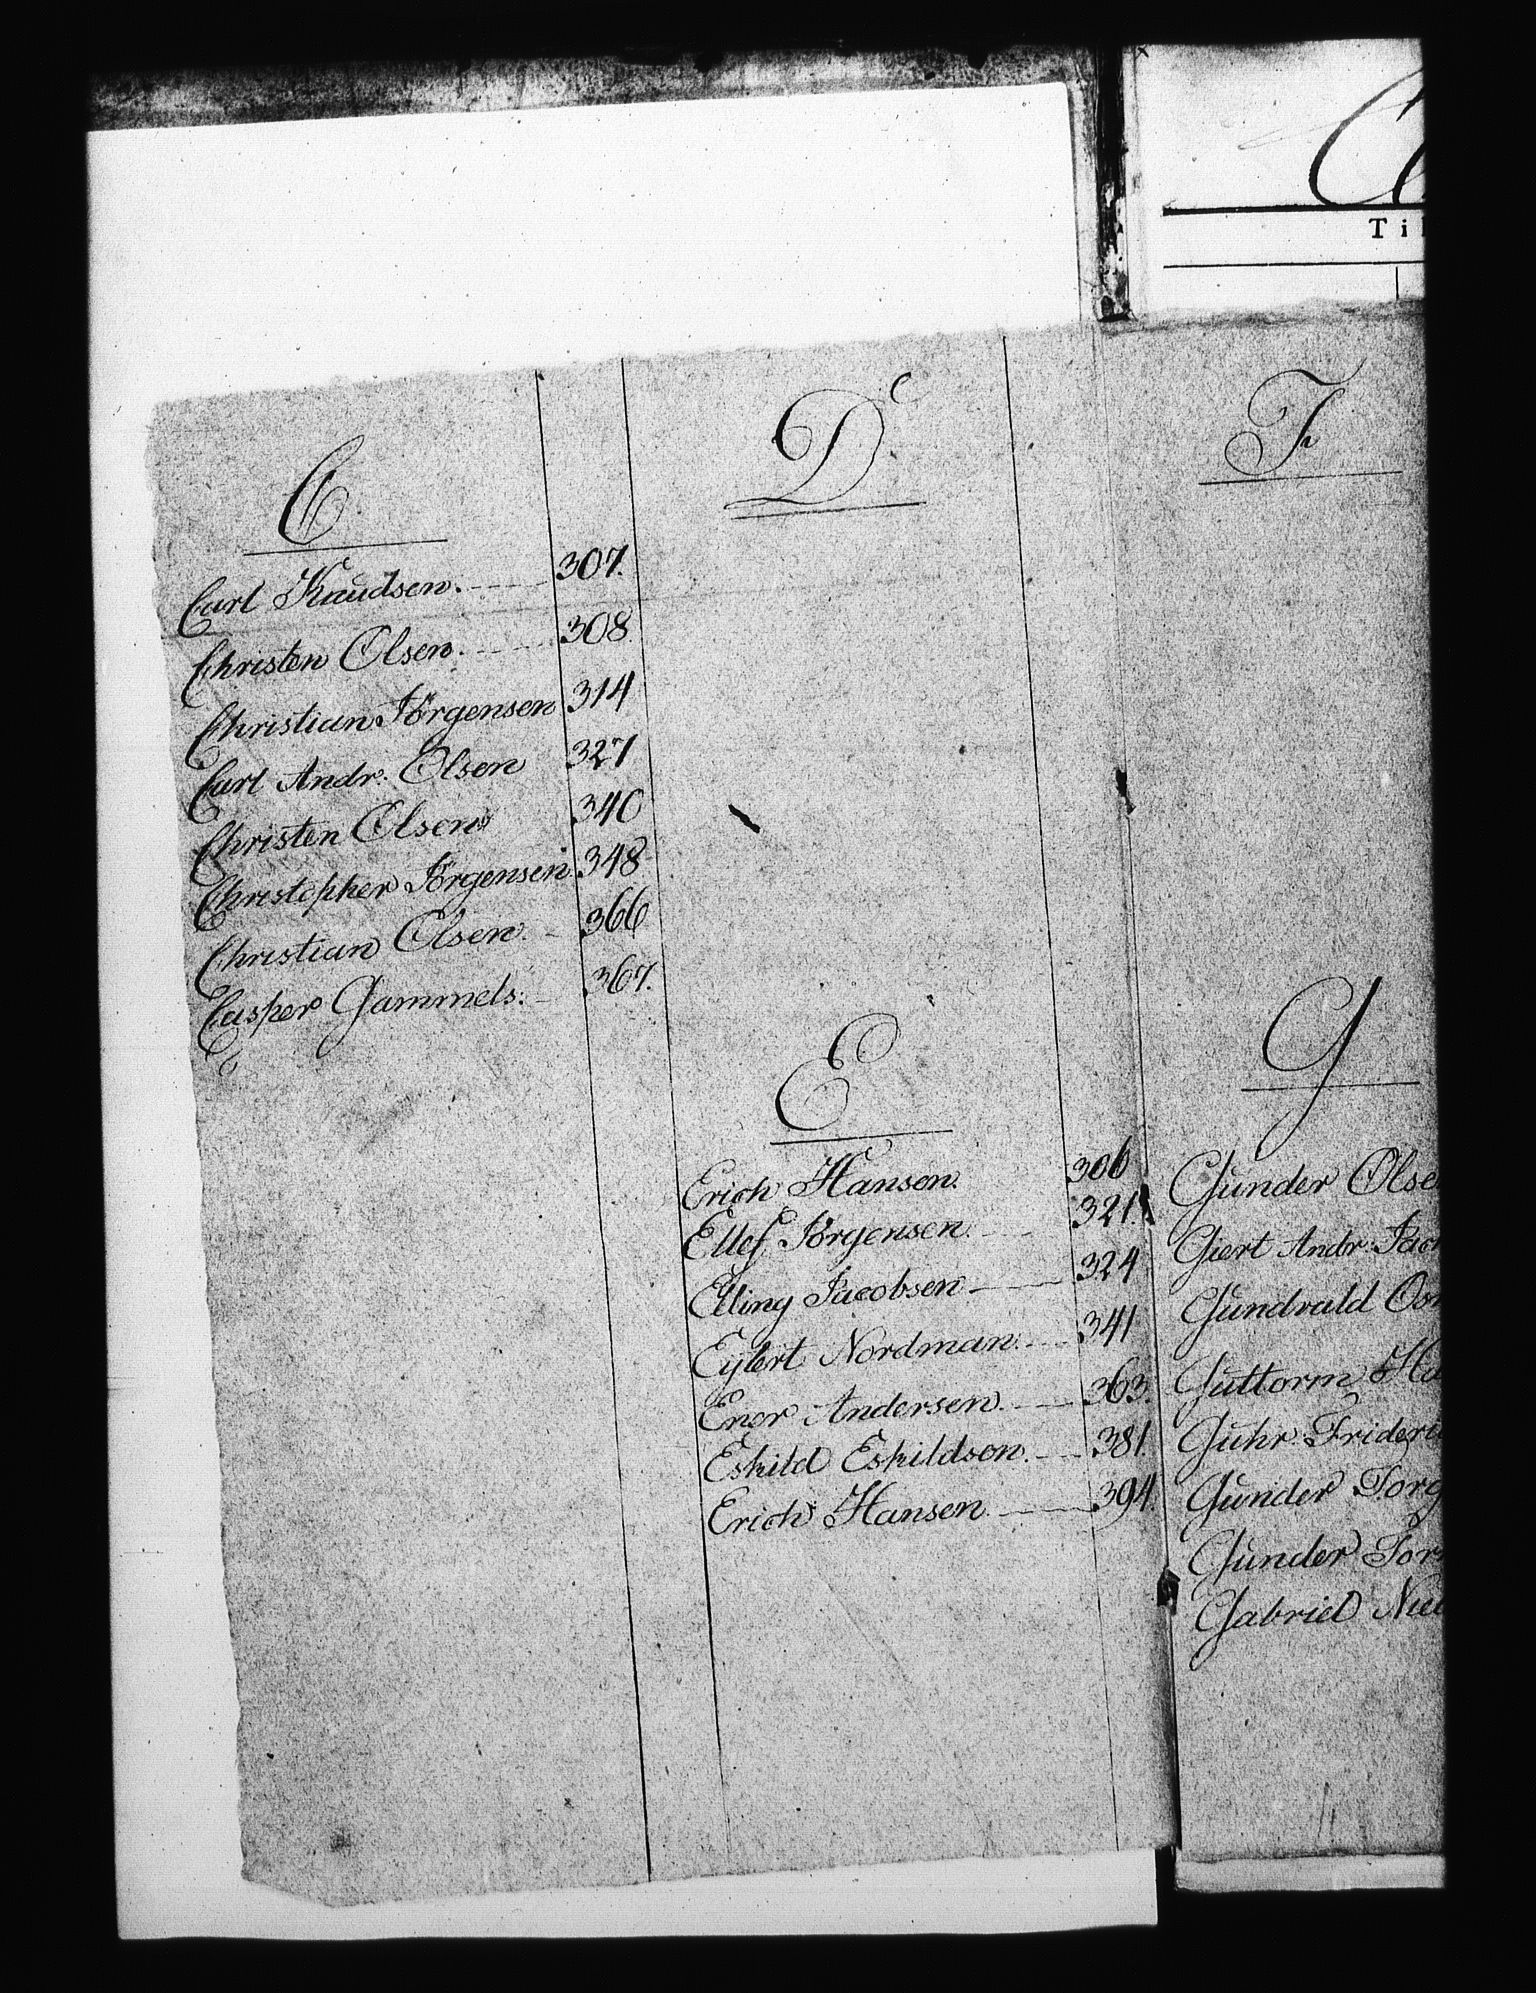 C
Carl Knudsen. 307.
Christen Olsen. 308.
Christian Jörgensen 314
Carl Andr. Olsen 327
Christen Olsen 340
Christopher Jörgensen 348
Christian Olsen. 366
Casper Gammels: 367.
D
E
Erich Hansen. 306
Ellef Jörgensen. 321.
Elling Jacobsen 324
Eylert Nordman. 341
Ener Andersen. 363.
Eskild Eskildsen. 381.
Erich Hansen. 394.
Til
F
G
Gunder Olse
Giert Andr: Jac
Gundvald
Guttorm Ha
Guhr: Frideri
Gunder Torg
Gunder Tor
Gabriel